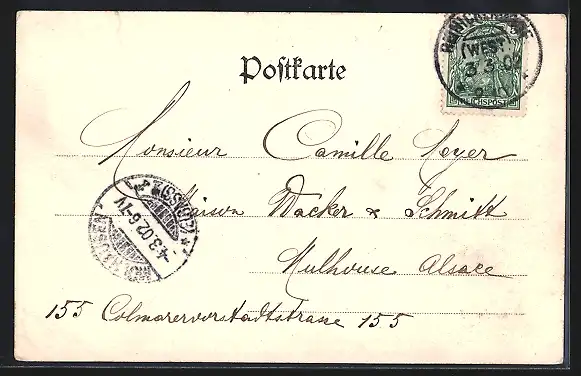 Postkarte
(WEST)
3.3.02
REICHSPOST
Monsieur Camille Meyer
Maison Wacker & Schmitt
Mulhouse Alsace
155 Colmarervorstadtstrasse 155
(ELSASS)
4.3.02.6-7V
MÜLHAUSEN